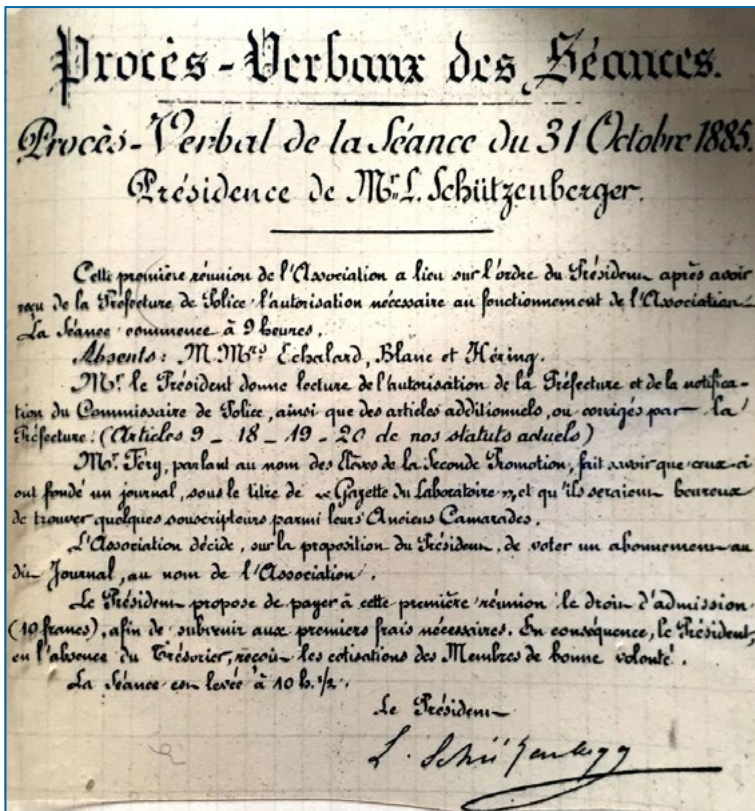 Procès-Verbaux des Séances.
Procès-Verbal de la Séance du 31 Octobre 1885.
Présidence de Mr. L. Schützenberger.
Cette première réunion de l'Association a lieu sur l'ordre du Président après avoir
reçu de la Préfecture de Police l'autorisation nécessaire au fonctionnement de l'Association.
La Séance commence à 9 heures.
Absents : M.Mrs. Echalard, Blanc et Héring.
Mr. le Président donne lecture de l'autorisation de la Préfecture et de la notifica-
tion du Commissaire de Police, ainsi que des articles additionnels, ou corrigés par la
Préfecture. (Articles 9 - 18 - 19 - 20 de nos statuts actuels)
Mr. Féry, parlant au nom des Elèves de la Seconde Promotion, fait savoir que ceux-ci
ont fondé un journal, sous le titre de « Gazette du Laboratoire », et qu'ils seraient heureux
de trouver quelques souscripteurs parmi leurs Anciens Camarades.
L'Association décide, sur la proposition du Président, de voter un abonnement au
dit Journal, au nom de l'Association.
Le Président propose de payer à cette première réunion le droit d'admission
(10 francs), afin de subvenir aux premiers frais nécessaires. En conséquence, le Président,
en l'absence du Trésorier, reçoit les cotisations des Membres de bonne volonté.
La Séance est levée à 10 h. 1/2.
Le Président
L. Schützenberger